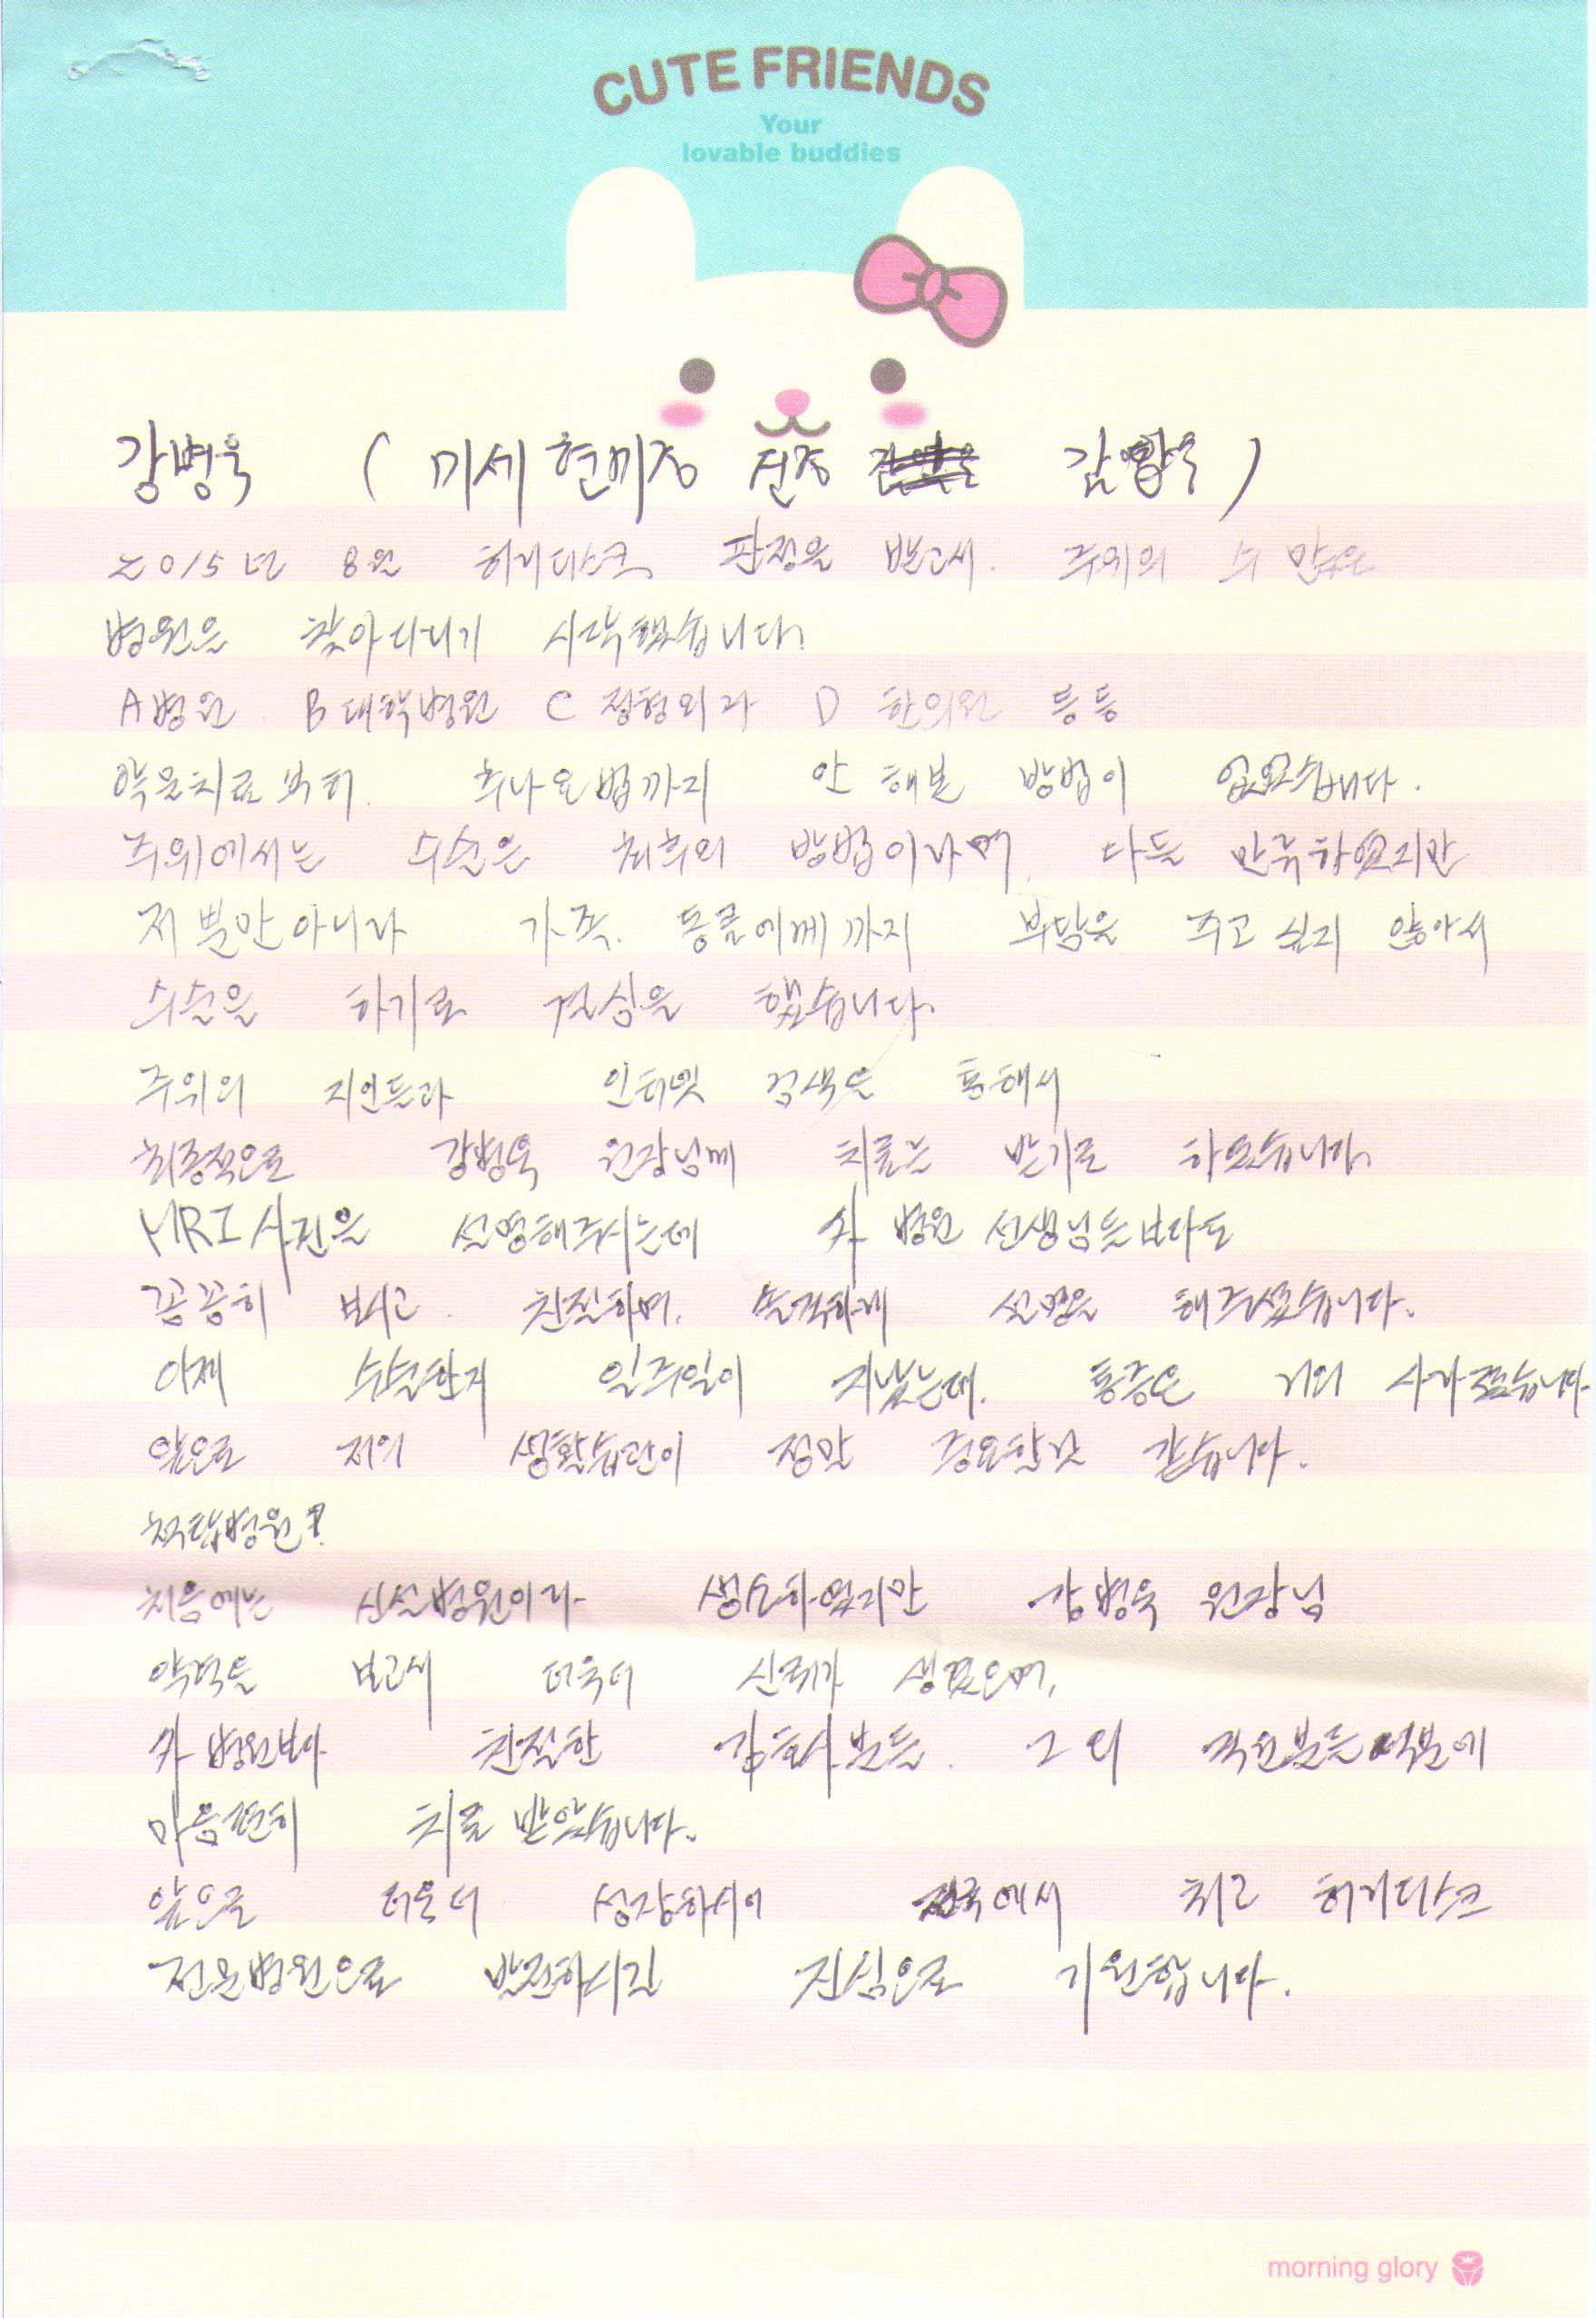 CUTE FRIENDS
Your
lovable buddies
강병욱 ( 미세현미경 선종 감압술 )
2015년 8월 허리디스크 판정을 받고서. 주위의 수 많은
병원을 찾아다니기 시작했습니다.
A병원 B대학병원 C 정형외과 D 한의원 등등
약물치료부터. 추나요법까지 안 해본 방법이 없었습니다.
주위에서는 수술은 최후의 방법이라며, 다들 만류하였지만
저 뿐만아니라 가족. 동료에게까지 부담을 주고 싶지 않아서
수술을 하기로 결심을 했습니다.
주위의 지인들과 인터넷 검색을 통해서
최종적으로 강병욱 원장님께 치료를 받기로 하였습니다.
MRI사진을 설명해주시는데 타 병원 선생님들보다도
꼼꼼히 보시고. 친절하며, 솔직하게 설명을 해주셨습니다.
이제 수술한지 일주일이 지났는데. 통증은 거의 사라졌습니다.
앞으로 저의 생활습관이 정말 중요한것 같습니다.
척탑병원?
처음에는 신설병원이라 생소하였지만 강병욱 원장님
약력을 보고서 더욱더 신뢰가 생겼으며,
타 병원보다 친절한 간호사분들. 그 외 직원분들 덕분에
마음편히 치료 받았습니다.
앞으로 더욱더 성장하시어 전국에서 최고 허리디스크
전문병원으로 발전하시길 진심으로 기원합니다.
morning glory